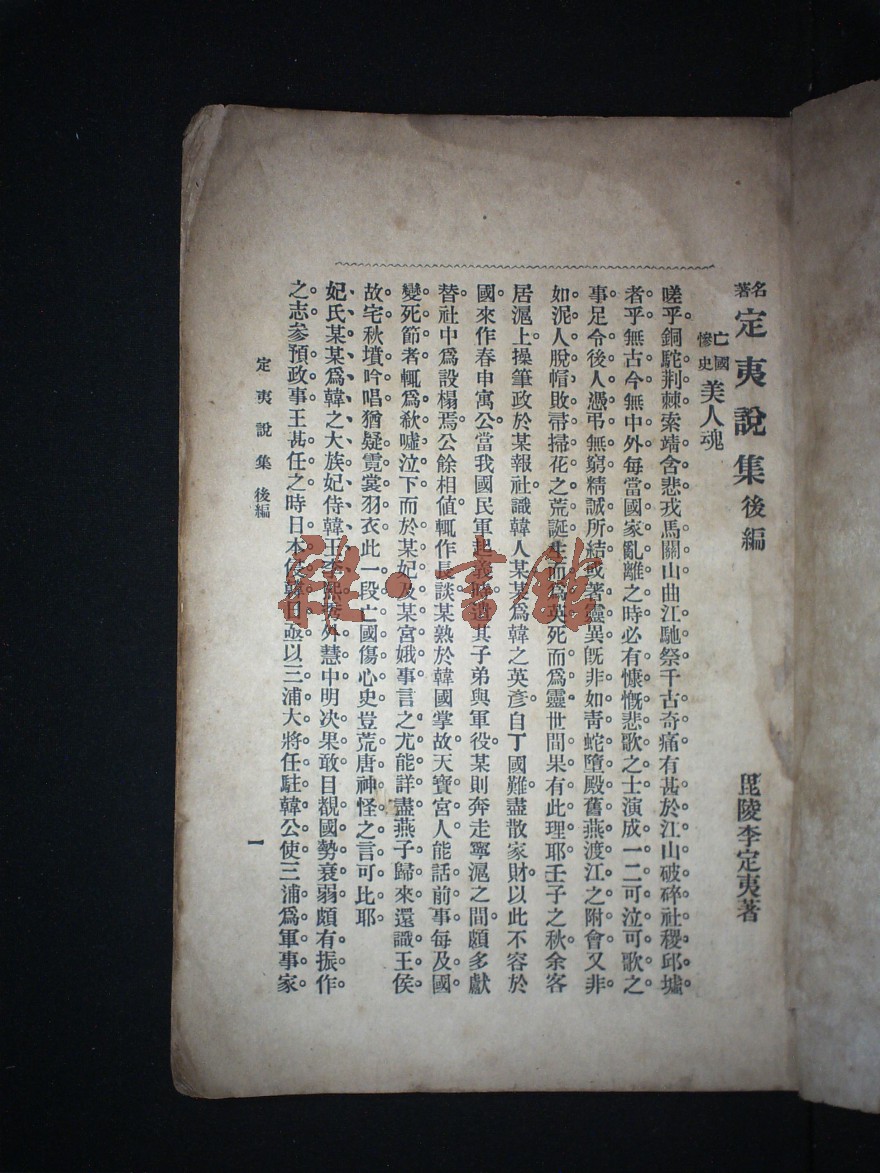 名著 定夷說集 後編 毘陵李定夷著
亡國慘史 美人魂
嗟乎銅駝荆棘索靖含悲戎馬關山曲江馳祭千古奇痛有甚於江山破碎社稷邱墟
者乎無古今無中外每當國家亂離之時必有慷慨悲歌之士演成一二可泣可歌之
事足令後人憑弔無窮精誠所結或著靈異旣非如靑蛇墮殿舊燕渡江之附會又非
如泥人脫帽敗帚掃花之荒誕生而爲英死而爲靈世間果有此理耶壬子之秋余客
居滬上操筆政於某報社識韓人某某爲韓之英彥自丁國難盡散家財以此不容於
國來作春申寓公當我國民軍起義時遣其子弟與軍役某則奔走寧滬之間頗多獻
替社中爲設榻焉公餘相値輒作長談某熟於韓國掌故天寶宮人能話前事每及國
變死節者輒爲欷噓泣下而於某妃及某宮娥事言之尤能詳盡燕子歸來還識王侯
故宅秋墳吟唱猶疑霓裳羽衣此一段亡國傷心史豈荒唐神怪之言可比耶
妃氏某某爲韓之大族妃侍韓王李熙秀外慧中明決果敢目覩國勢衰弱頗有振作
之志參預政事王甚任之時日本侵韓日亟以三浦大將任駐韓公使三浦爲軍事家
定夷說集 後編
一